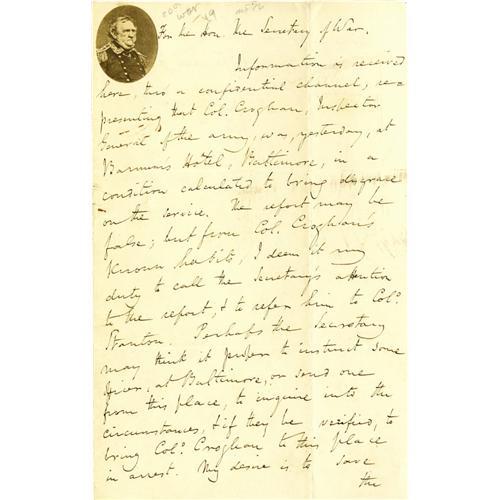 For the Hon. the Secretary of War.
Information is received
here, thro' a confidential channel, re=
presenting that Col. Croghan, Inspector
General of the army, was, yesterday, at
Barnum's Hotel, Baltimore, in a
condition calculated to bring disgrace
on the service. The report may be
false; but from Col. Croghan's
known habits, I deem it my
duty to call the Secretary's attention
to the report, & to refer him to Colo.
Stanton. Perhaps the Secretary
may think it proper to instruct some
officer, at Baltimore, or send one
from this place, to inquire into the
circumstances, & if they be verified, to
bring Colo. Croghan to this place
in arrest. My desire is to save
the